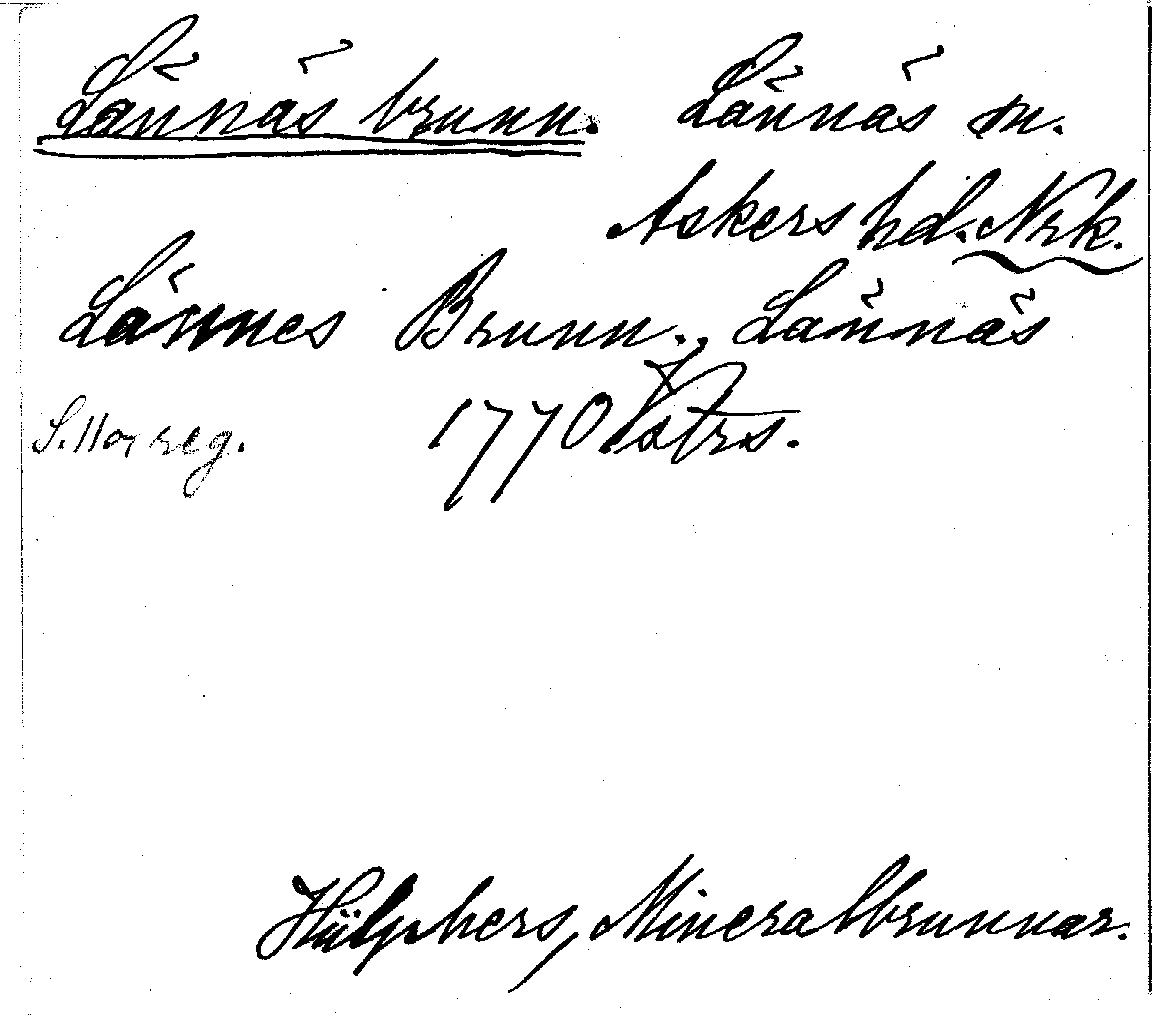 Lännäs brunn. Lännäs sn.
Askers hd. Nrk.
Lännes Brunn., Lännäs
S. Horreg. 1770 Vstrs.
Hülphers, Mineralbrunnar.